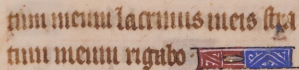 tum meum lacrimis meis stra
tum meum rigabo